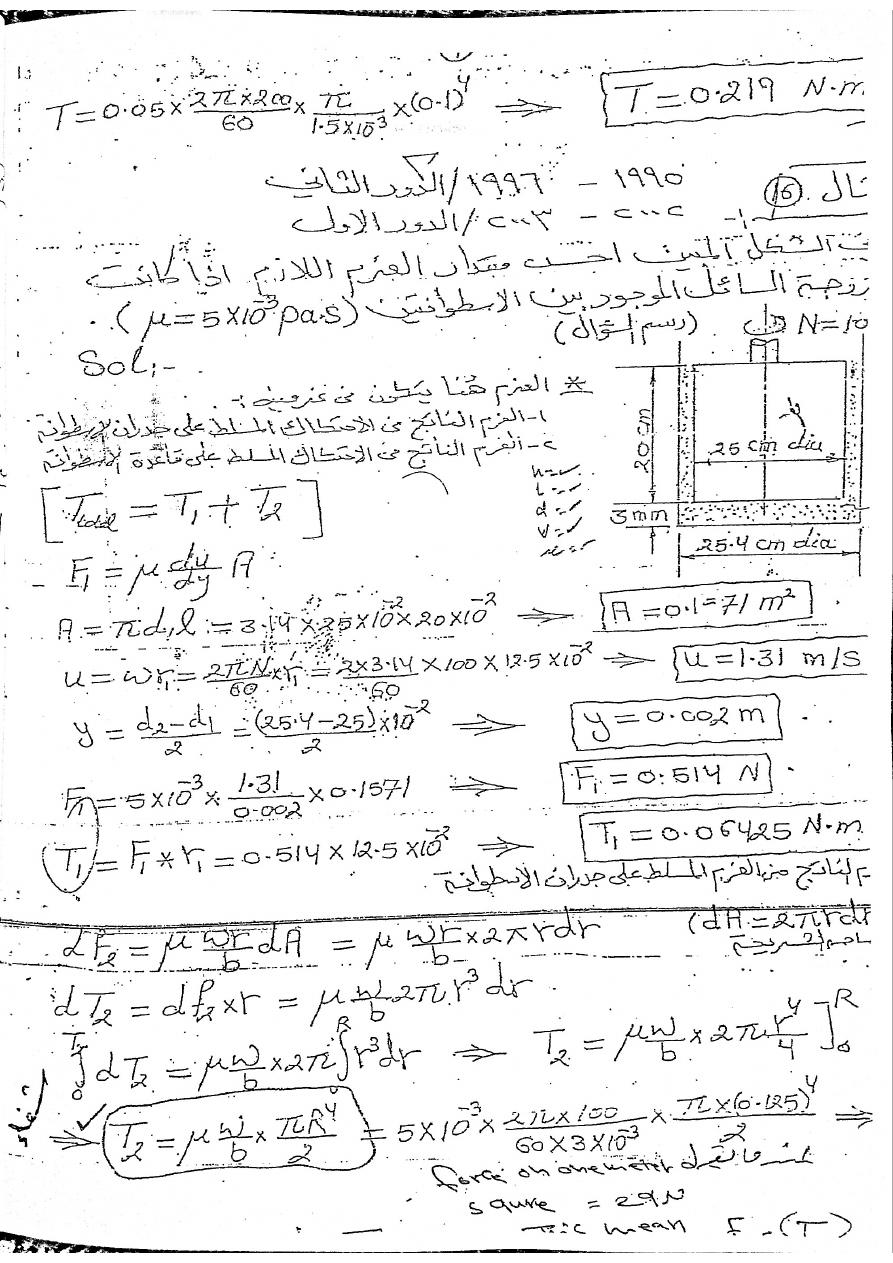 T = 0.05 × 2π×200/60 × π/1.5×10⁻³ × (0.1)⁴ ⇒ T = 0.219 N.m
١٩٩٠ - ١٩٩٦ / الدور الثاني
ثال 16
٢٠٠٢ - ٢٠٠٣ / الدور الاول
الشكل المبين احسب مقدار العزم اللازم اذا كانت
لزوجة السائل الموجود بين الاسطوانتين (μ = 5×10⁻³ pa.s).
(رسم السؤال) N = 10
Sol:-
* العزم هنا يتكون من عزمين:-
١- العزم الناتج من الاحتكاك المسلط على جدران الاسطوانة
٢- العزم الناتج من الاحتكاك المسلط على قاعدة الاسطوانة
20 cm
25 cm dia
3 mm
25.4 cm dia
[T_total = T₁ + T₂]
F₁ = μ du/dy A
A = πd₁l = 3.14×25×10⁻²×20×10⁻² ⇒ A = 0.1571 m²
u = ωr₁ = 2πN/60 × r₁ = 2×3.14/60 × 100 × 12.5×10⁻² ⇒ u = 1.31 m/s
y = d₂-d₁/2 = (25.4-25)×10⁻²/2 ⇒ y = 0.002 m
F₁ = 5×10⁻³ × 1.31/0.002 × 0.1571 ⇒ F₁ = 0.514 N
T₁ = F₁ * r₁ = 0.514 × 12.5×10⁻² ⇒ T₁ = 0.06425 N.m
الناتج من العزم المسلط على جدران الاسطوانة
dF₂ = μ ωr/b dA = μ ωr/b × 2πrdr (dA = 2πrdr
الشريحة
dT₂ = df₂×r = μ ω/b 2πr³ dr
∫₀^T₂ dT₂ = μ ω/b × 2π ∫₀^R r³dr ⇒ T₂ = μ ω/b × 2π r⁴/4 ]₀^R
⇒ T₂ = μ ω/b × πR⁴/2 = 5×10⁻³ × 2π×100/60×3×10⁻³ × π×(0.125)⁴/2 ⇒
force on one meter
squre = 2 N
mean F - (T)